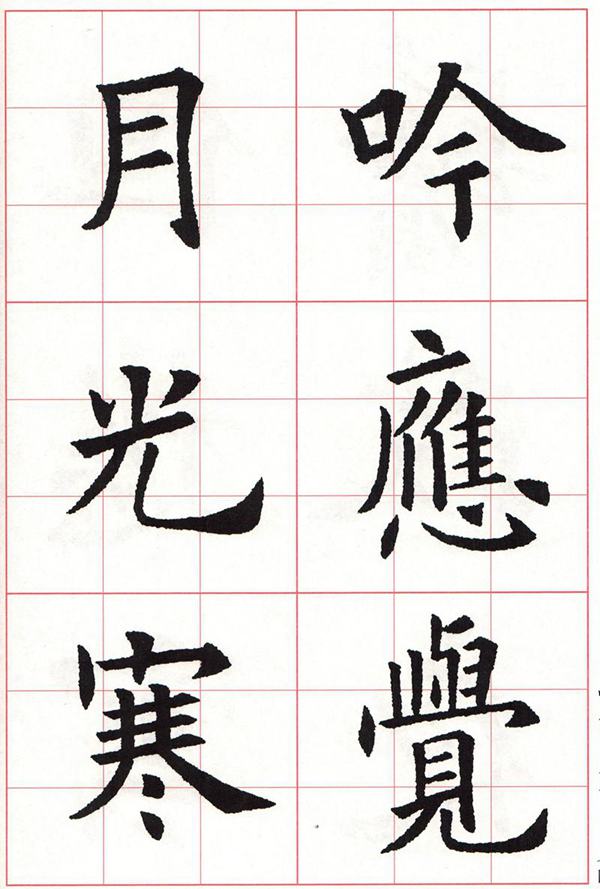 吟應覺
月光寒